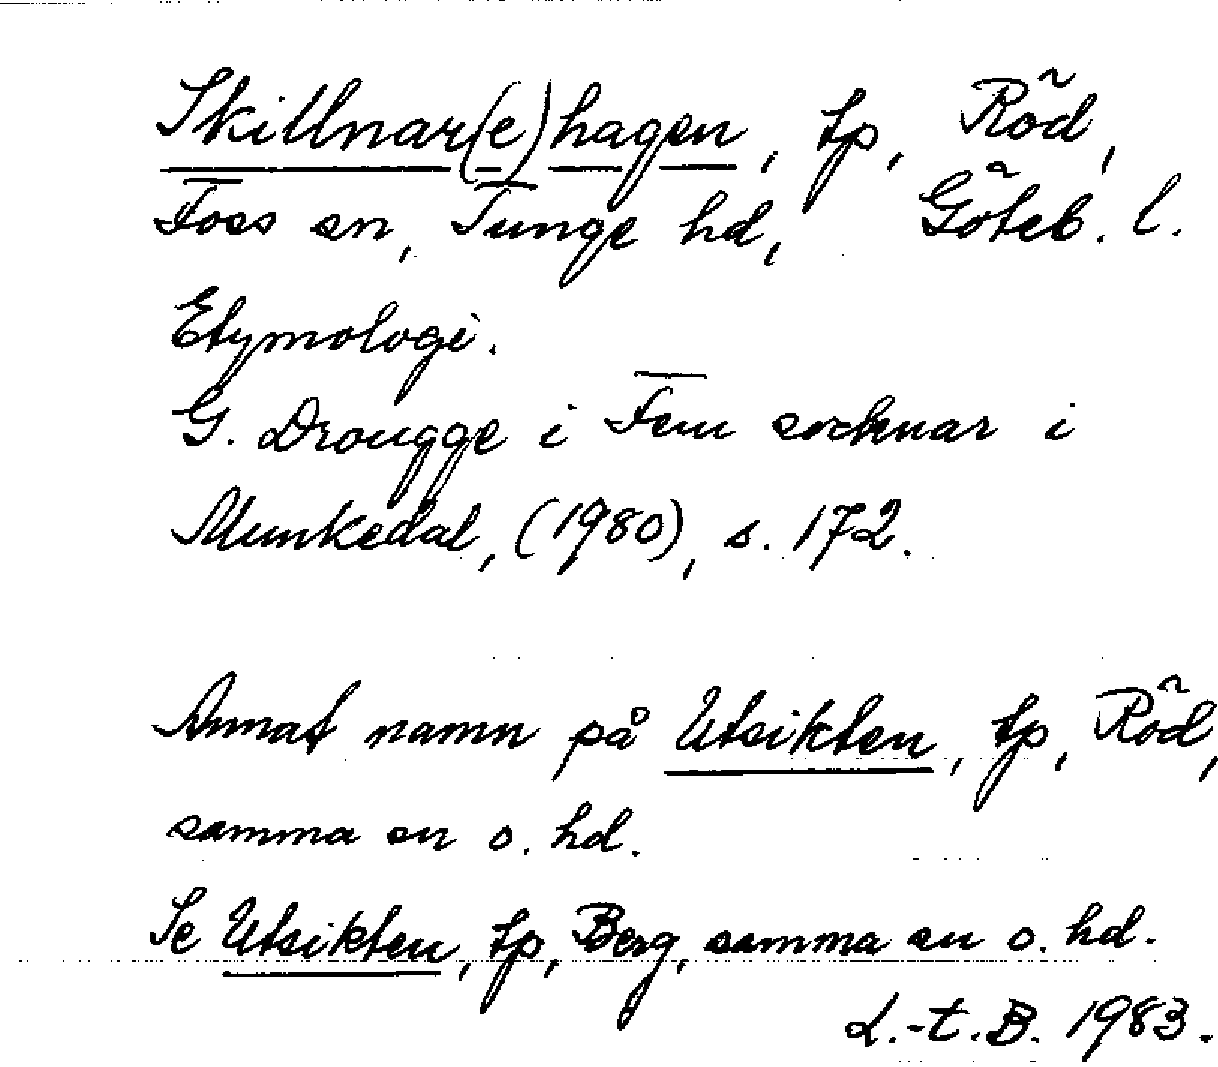 Skillnar(e)hagen, tp, Röd,
Foss sn, Tunge hd, Göteb. l.
Etymologi.
G. Drougge i Fem socknar i
Munkedal, (1980), s. 172.
Annat namn på Utsikten, tp, Röd,
samma sn o. hd.
Se Utsikten, tp, Berg, samma sn o. hd.
L.-t. B. 1983.